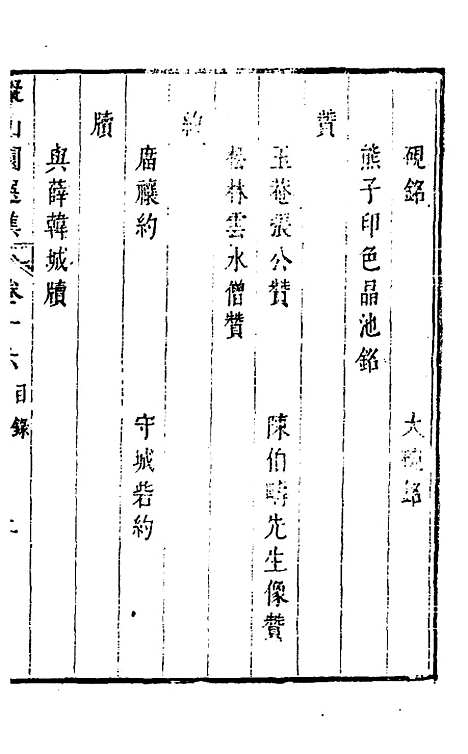 硯銘　大硯銘
熊子印色品池銘
贊
玉菴張公贊　陳伯疇先生像贊
松林雲水僧贊
約
㢑禳約　守城砦約
牘
與薛韓城牘
擬山園選集　卷十六　目錄